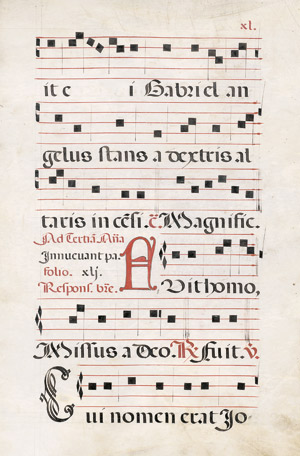 xl.
it e i Gabriel an
gelus stans a dextris al
taris in cēsi. c̄ Magnific.
Ad Tertiā. Aña
Innucuant pa.
folio. xlj.
Respons. bre.
A
Vit homo,
Missus a deo. R Fuit. V
C
ui nomen erat Jo